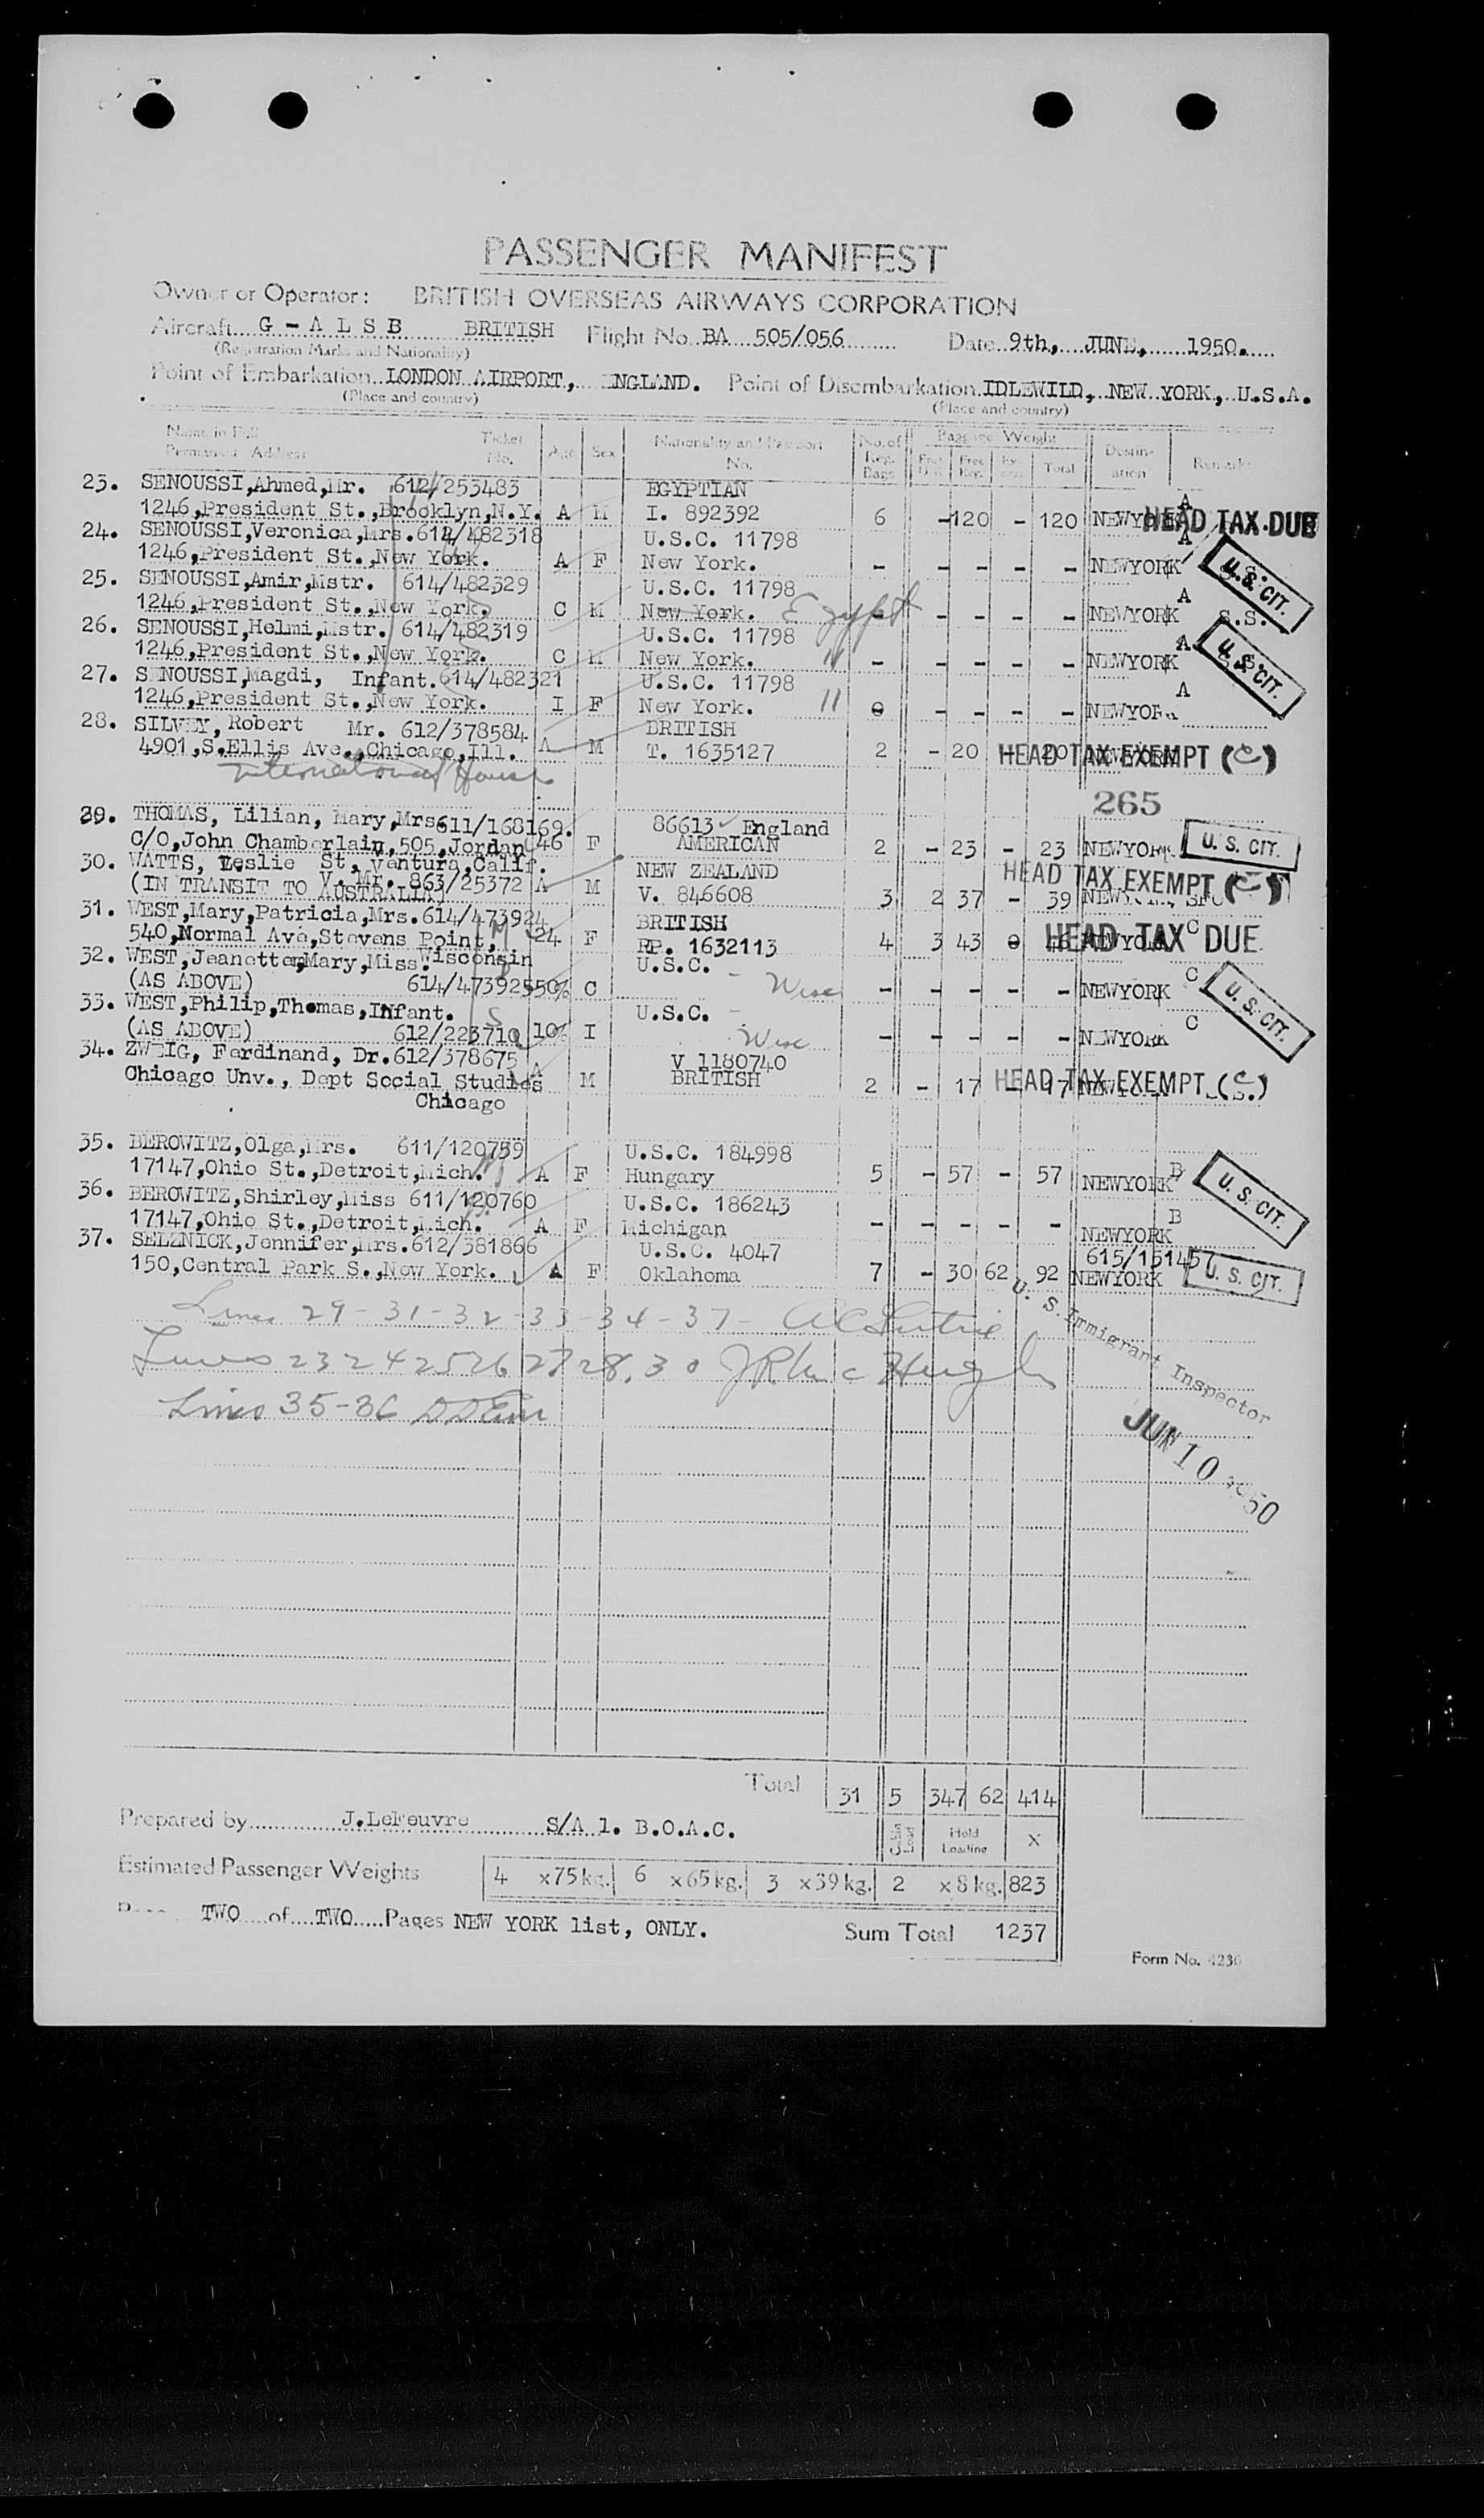 PASSENGER MANIFEST
Owner or Operator: BRITISH OVERSEAS AIRWAYS CORPORATION
Aircraft G - A L S B BRITISH Flight No. BA 505/056 Date 9th, JUNE, 1950.
(Registration Marks and Nationality)
Point of Embarkation LONDON AIRPORT, ENGLAND. Point of Disembarkation IDLEWILD, NEW YORK, U.S.A.
(Place and country) (Place and country)
Name in Full Ticket Nationality and Passport No. of Baggage Weight Destin-
Permanent Address No. Age Sex No. Reg. Bags Free Ex- Total ation Remarks
23. SENOUSSI,Ahmed,Mr. 612/253483 EGYPTIAN A
1246,President St.,Brooklyn,N.Y. A M I. 892392 6 -120 - 120 NEWYORK HEAD TAX DUE
24. SENOUSSI,Veronica,Mrs.614/482318 U.S.C. 11798 A
1246,President St.,New York. A F New York. - - - - - NEWYORK U.S. CIT.
25. SENOUSSI,Amir,Mstr. 614/482329 U.S.C. 11798 A
1246,President St.,New York. C M New York. Egypt - - - - NEWYORK S.S.
26. SENOUSSI,Helmi,Mstr. 614/482319 U.S.C. 11798 A
1246,President St.,New York. C M New York. " - - - - - NEWYORK U.S. CIT.
27. SENOUSSI,Magdi, Infant.614/482321 U.S.C. 11798 A
1246,President St.,New York. I F New York. 11 0 - - - - NEWYORK
28. SILVEY,Robert Mr. 612/378584 BRITISH
4901,S.Ellis Ave.,Chicago,Ill. A M T. 1635127 2 - 20 - 20 NEWYORK HEAD TAX EXEMPT (C)
International House
265
29. THOMAS, Lilian, Mary,Mrs611/168169. 86613 England
C/O,John Chamberlain,505,Jordan 46 F AMERICAN 2 - 23 - 23 NEWYORK U. S. CIT.
30. WATTS, Leslie St, Ventura,Calif. NEW ZEALAND HEAD TAX EXEMPT
(IN TRANSIT TO AUSTRALIA) V. Mr. 863/25372 A M V. 846608 3 2 37 - 39
31. WEST,Mary,Patricia,Mrs.614/473924 BRITISH C
540,Normal Ave,Stevens Point, 24 F RP. 1632113 4 3 43 0 46 NEWYORK HEAD TAX DUE
32. WEST,Jeanette,Mary,Miss. Wisconsin U.S.C. - C
(AS ABOVE) 614/473925 50% C Wisc - - - - - NEWYORK U. S. CIT.
33. WEST,Philip,Thomas,Infant. U.S.C. - C
(AS ABOVE) 612/223710 10% I Wisc - - - - - NEWYORK
34. ZWEIG, Ferdinand, Dr.612/378675 A V 1180740
Chicago Unv., Dept Social Studies M BRITISH 2 - 17 - 17 HEAD TAX EXEMPT (C)
Chicago
35. BEROWITZ,Olga,Mrs. 611/120759 U.S.C. 184998
17147,Ohio St.,Detroit,Mich. A F Hungary 5 - 57 - 57 NEWYORK B U. S. CIT.
36. BEROWITZ,Shirley,Miss 611/120760 U.S.C. 186243 B
17147,Ohio St.,Detroit,Mich. A F Michigan - - - - - NEWYORK
37. SELZNICK,Jennifer,Mrs.612/381866 U.S.C. 4047 615/151457
150,Central Park S.,New York. A F Oklahoma 7 - 30 62 92 NEWYORK U. S. CIT.
Lines 29-31-32-33-34-37-
Lines 23 24 25 26 27 28, 30 J R Mc Hugh
Lines 35-36
U. S. Immigrant Inspector
JUN 10 1950
Total 31 5 347 62 414
Prepared by J.LeFeuvre S/A 1. B.O.A.C. Cabin Load Hold Loading X
Estimated Passenger Weights 4 x75kg. 6 x65kg. 3 x39kg. 2 x8kg. 823
Page TWO of TWO Pages NEW YORK list, ONLY. Sum Total 1237
Form No. 4230